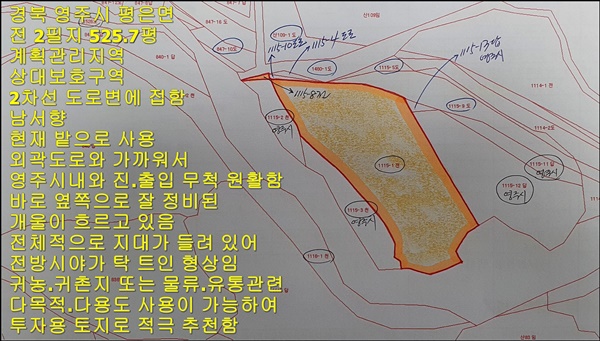 경북 영주시 평은면
전 2필지 525.7평
계획관리지역
상대보호구역
2차선 도로변에 접함
남서향
현재 밭으로 사용
외곽도로와 가까워서
영주시내와 진.출입 무척 원활함
바로 옆쪽으로 잘 정비된
개울이 흐르고 있음
전체적으로 지대가 들려 있어
전방시야가 탁 트인 형상임
귀농.귀촌지 또는 물류.유통관련
다목적.다용도 사용이 가능하여
투자용 토지로 적극 추천함
산109-1 도
647-10도
1115-10도로
1115-4 도로
1490-1도
1115-5도
1115-13답
영주시
1115-8전
1115-9 도
1114-1 전
1114-2도
영주시
1115-1 전
1115-11 답
영주시
1115-10 답
영주시
영주시
1118-1 전